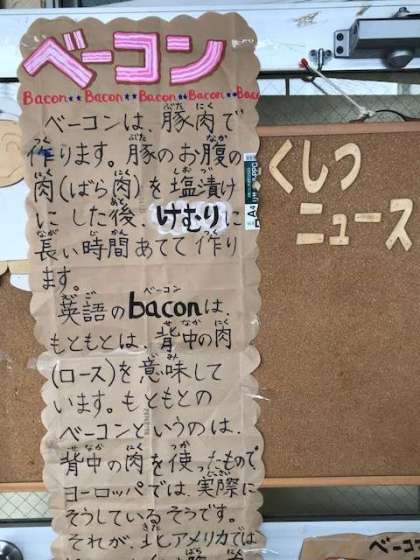 ベーコン
Bacon★★Bacon★★Bacon★★Bacon★★Baco
ベーコンは、豚肉で
作ります。豚のお腹の
肉(ばら肉)を塩漬け
にした後、けむりに
長い時間あてて作り
ます。
英語のbaconは、
もともとは、背中の肉
(ロース)を意味して
います。もともとの
ベーコンというのは、
背中の肉を使ったもので
ヨーロッパでは、実際に
そうしているそうです。
それが、北アメリカでは
くしつ
ニュース
A4